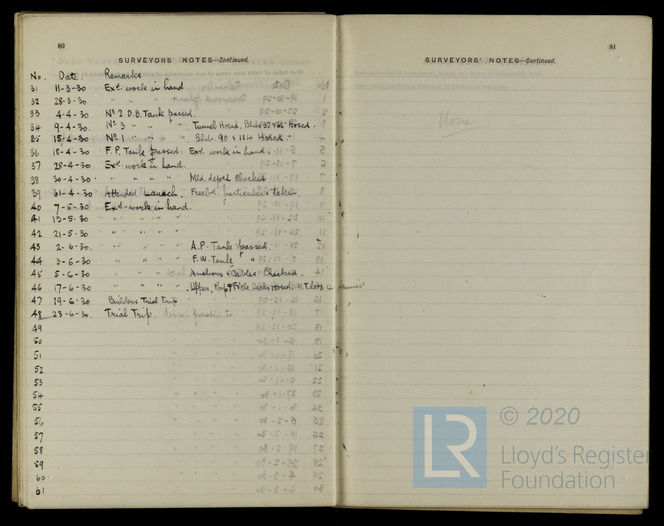 80
SURVEYORS' NOTES—Continued.
No. Date. Remarks
31 11-3-30 Exd. work in hand
32 28-3-30 " " "
33 4-4-30 No 2 D.B. Tank passed.
34 9-4-30 No 3 " " " Tunnel Hosed, Blds 37 & 66 Hosed.
35 15-4-30 No 1 " " " Bld. 90 & 114 Hosed
36 18-4-30 F.P. Tank passed. Exd. work in hand.
37 28-4-30 Exd. work in hand.
38 30-4-30 " " " " Mld. depth Checked
39 31-4-30 Attended Launch. Freebd. particulars taken.
40 7-5-30 Exd. work in hand.
41 13-5-30 " " "
42 21-5-30 " " "
43 2-6-30. " " " " A.P. Tank passed.
44 3-6-30 " " " F.W. Tank "
45 5-6-30 " " " " Anchors & Cables Checked.
46 17-6-30 " " " Upper, Poop & F'cle. Decks Hosed. W.T. doors
47 19-6-30 Builders Trial Trip
48 23-6-30. Trial Trip.
49
50
51
52
53
54
55
56
57
58
59
60
61
81
SURVEYORS' NOTES—Continued.
None
© 2020
LR
Lloyd's Register
Foundation